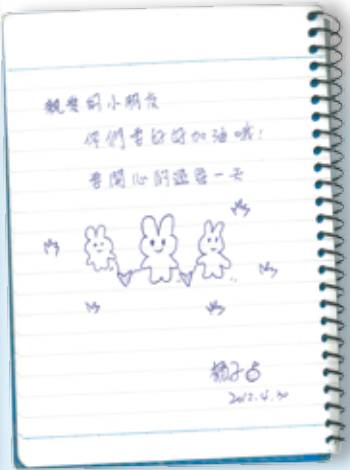 親愛的小朋友
你們要好好加油哦!
要開心的過每一天
2012.4.30